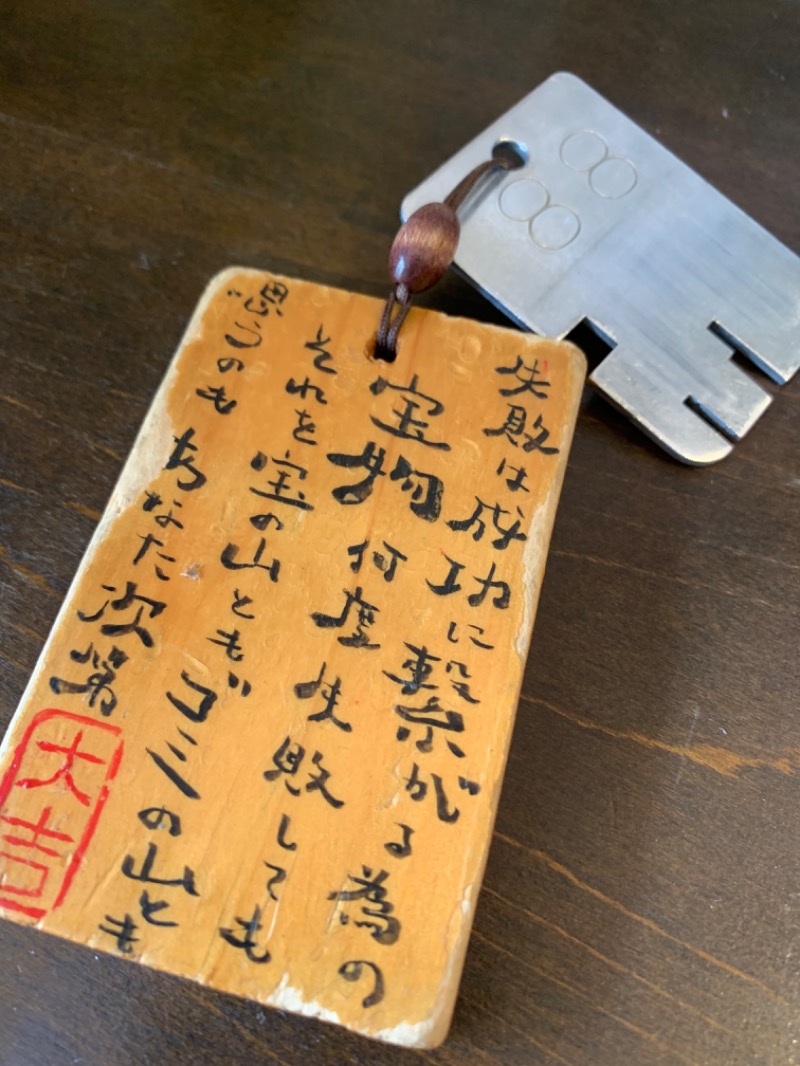 失敗は成功に繋がる為の
宝物 何度失敗しても
それを宝の山ともゴミの山とも
思うのも あなた次第
大吉